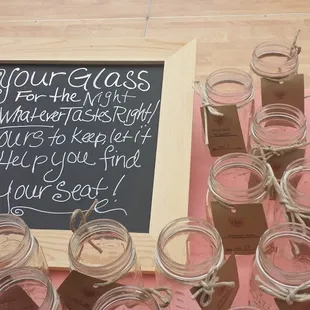 your Glass
For the Night
Whatever Tastes Right/
ours to keep let it
Help you find
Your Seat!